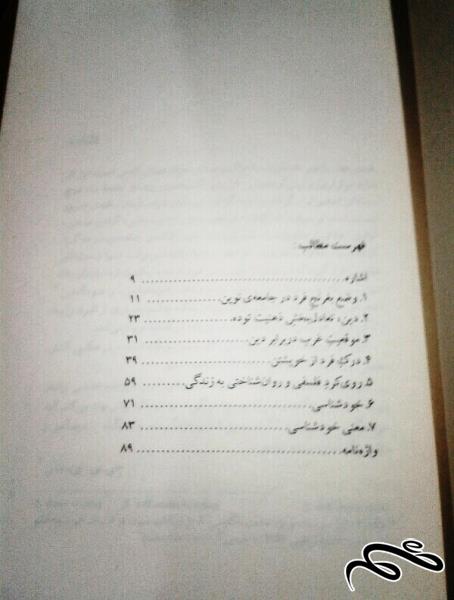 فهرست مطالب
اشاره ... ۹
۱. وضع بغرنج فرد در جامعه‌ی نوین ... ۱۱
۲. دین، تعادل‌بخش ذهنیت توده ... ۲۳
۳. موقعیت غرب در برابر دین ... ۳۱
۴. درک فرد از خویشتن ... ۳۹
۵. روی‌کرد فلسفی و روان‌شناختی به زندگی ... ۵۹
۶. خودشناسی ... ۷۱
۷. معنی خودشناسی ... ۸۳
واژه‌نامه ... ۸۹